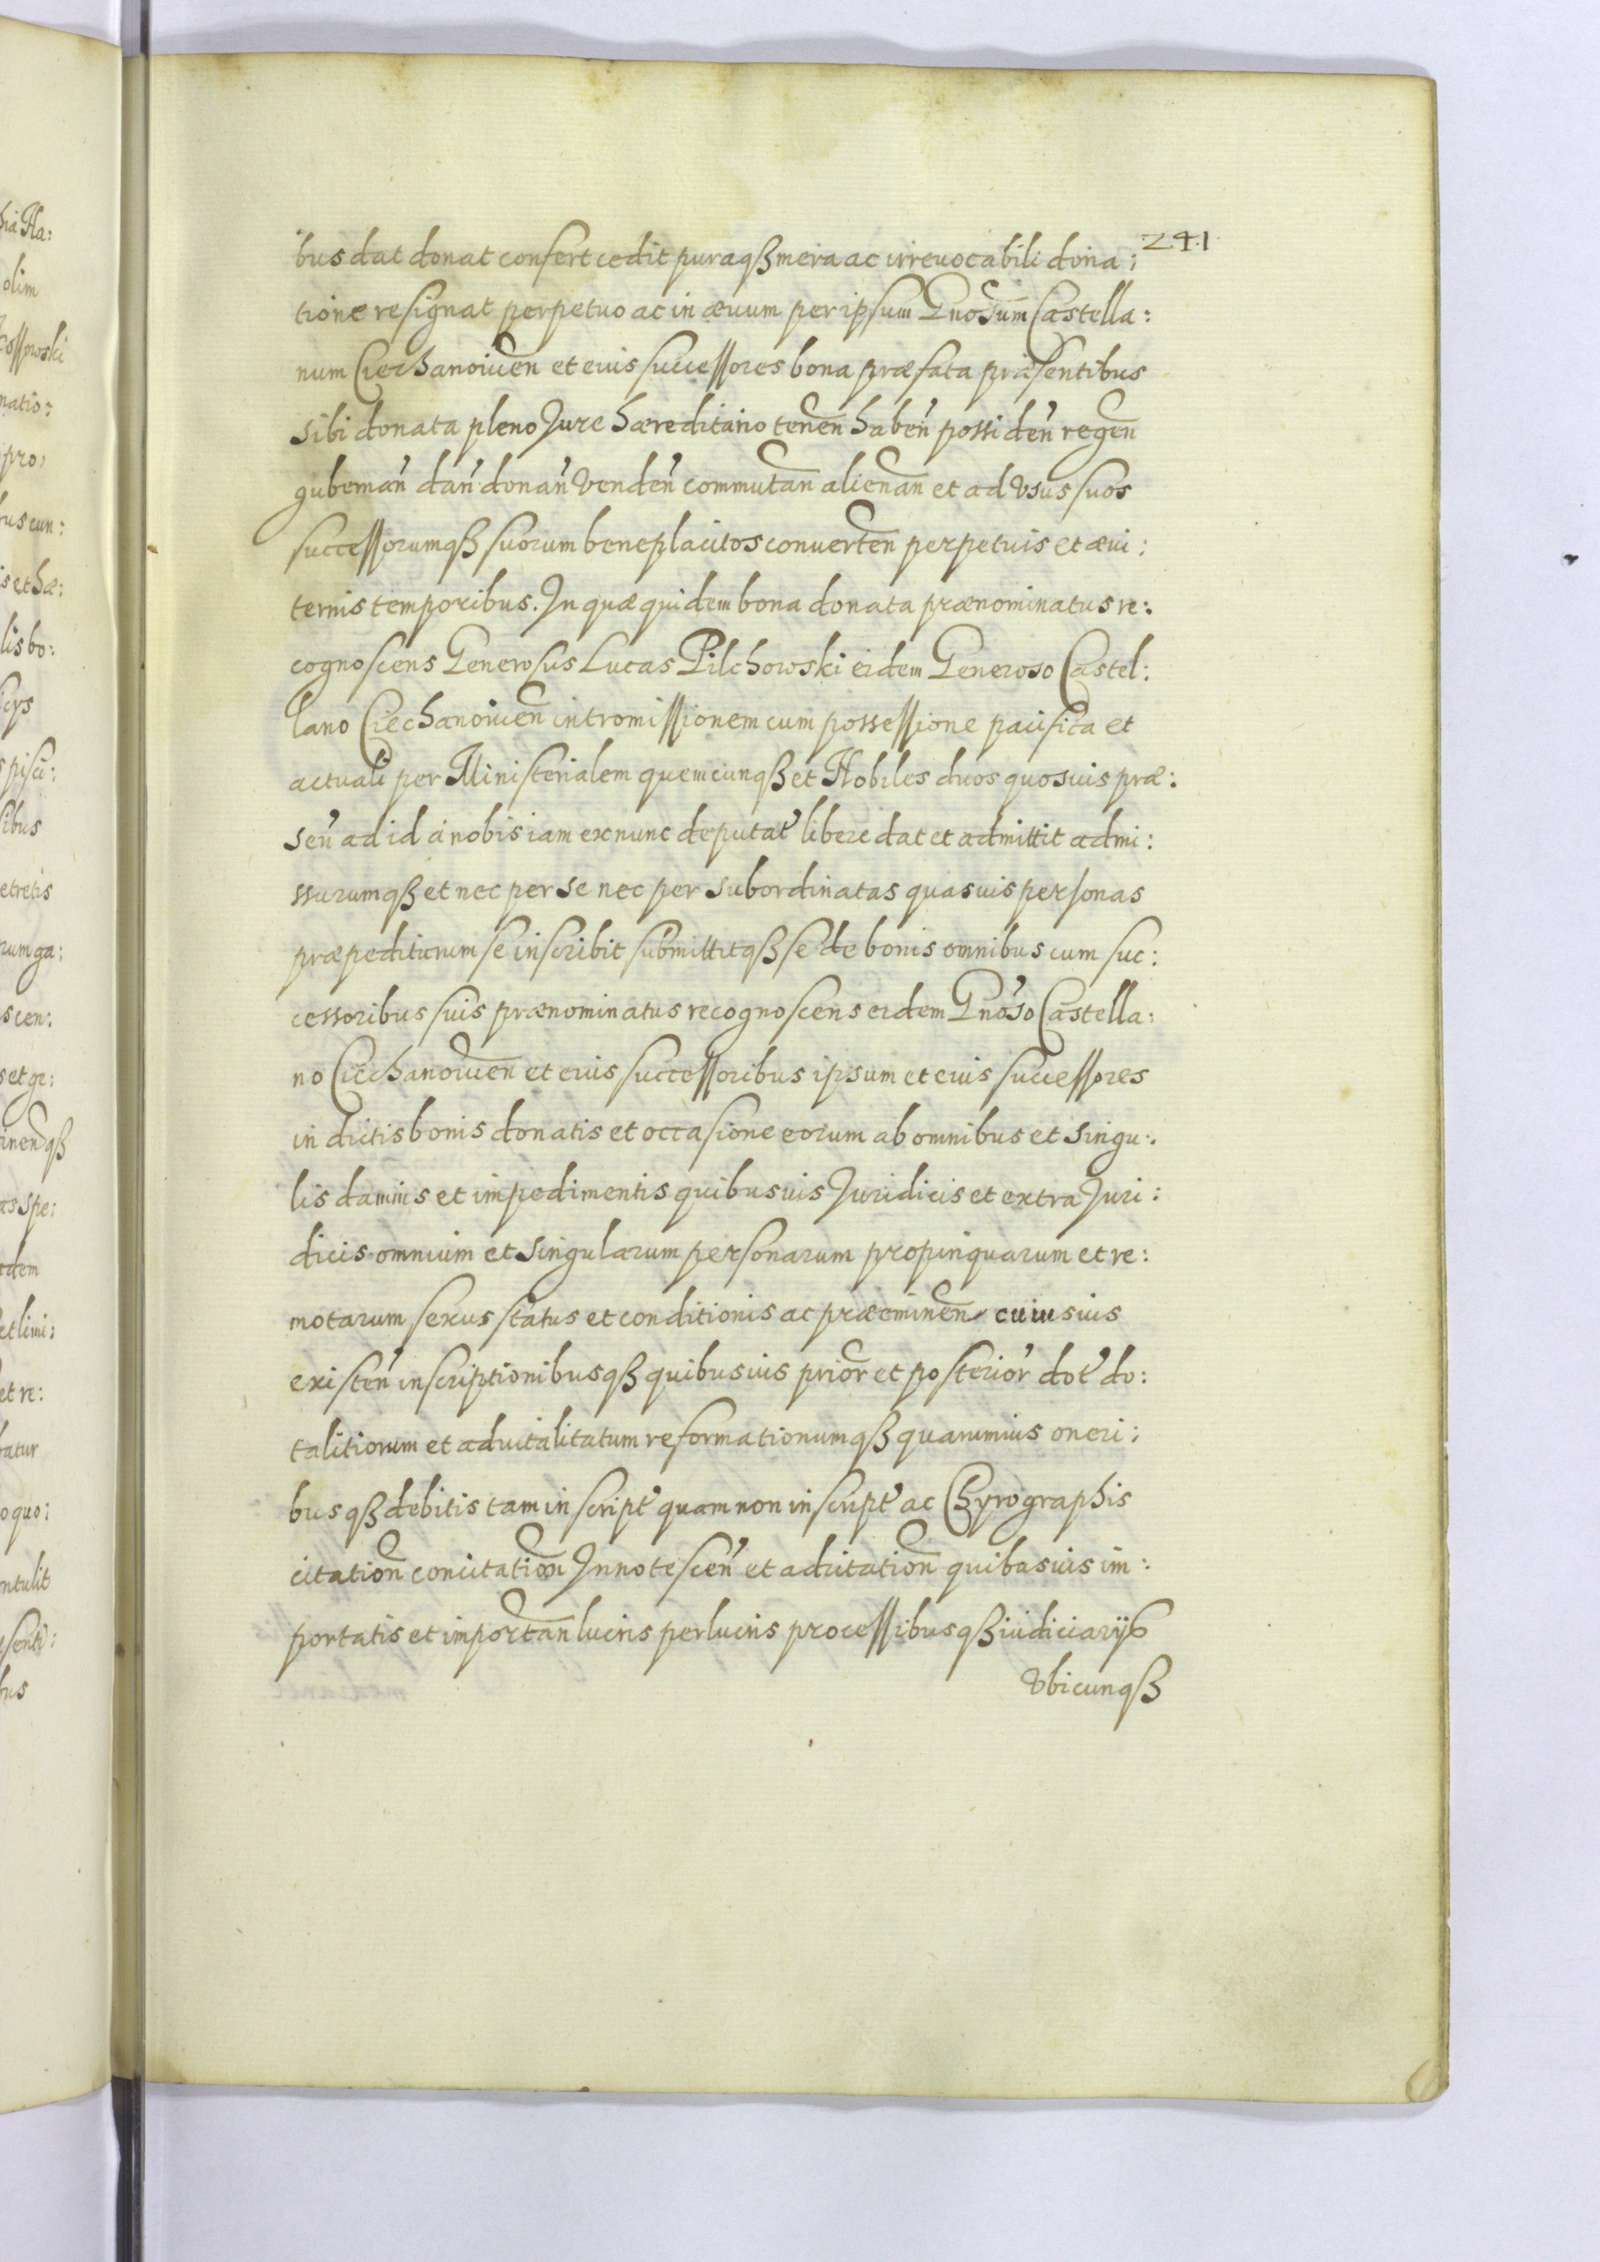 241
bus dat donat confert cedit puraqß mera ac irrevocabili dona:
tione resignat perpetuo ac in ævum per ipsum Gnosum Castella:
num Ciechanovien et eius successores bona præfata præsentibus
sibi donata pleno Jure hæreditario tenen haben possiden regen
gubernan dan donan venden commutan alienan et ad usus suos
successorumqß suorum beneplacitos converten perpetuis et ævi:
ternis temporibus. In quæ quidem bona donata prænominatus re:
cognoscens Generosus Lucas Pilchowski eidem Generoso Castel:
lano Ciechanovien intromissionem cum possessione pacifica et
actuali per Ministerialem quemcunqß et Nobiles duos quosvis præ:
sen ad id à nobis iam ex nunc deputat libere dat et admittit admi:
ssurumqß et nec per se nec per subordinatas quasvis personas
præpediturum se inscribit submittitqß se de bonis omnibus cum suc:
cessoribus suis prænominatus recognoscens eidem Gnoso Castella:
no Ciechanovien et eius successoribus ipsum et eius successores
in dictis bonis donatis et occasione eorum ab omnibus et singu:
lis damnis et impedimentis quibusvis Juridicis et extra Juri:
dicis omnium et singularum personarum propinquarum et re:
motarum sexus status et conditionis ac præeminen cuiusvis
existen inscriptionibusqß quibusvis prior et posterior dot do:
talitiorum et advitalitatum reformationumqß quarumvis oneri:
busqß debitis tam inscript quam non inscript ac Chyrographis
citation concitation Innotescen et adcitation quibusvis im:
portatis et importan lucris perlucris processibusqß iudiciarijs
Vbicunqß